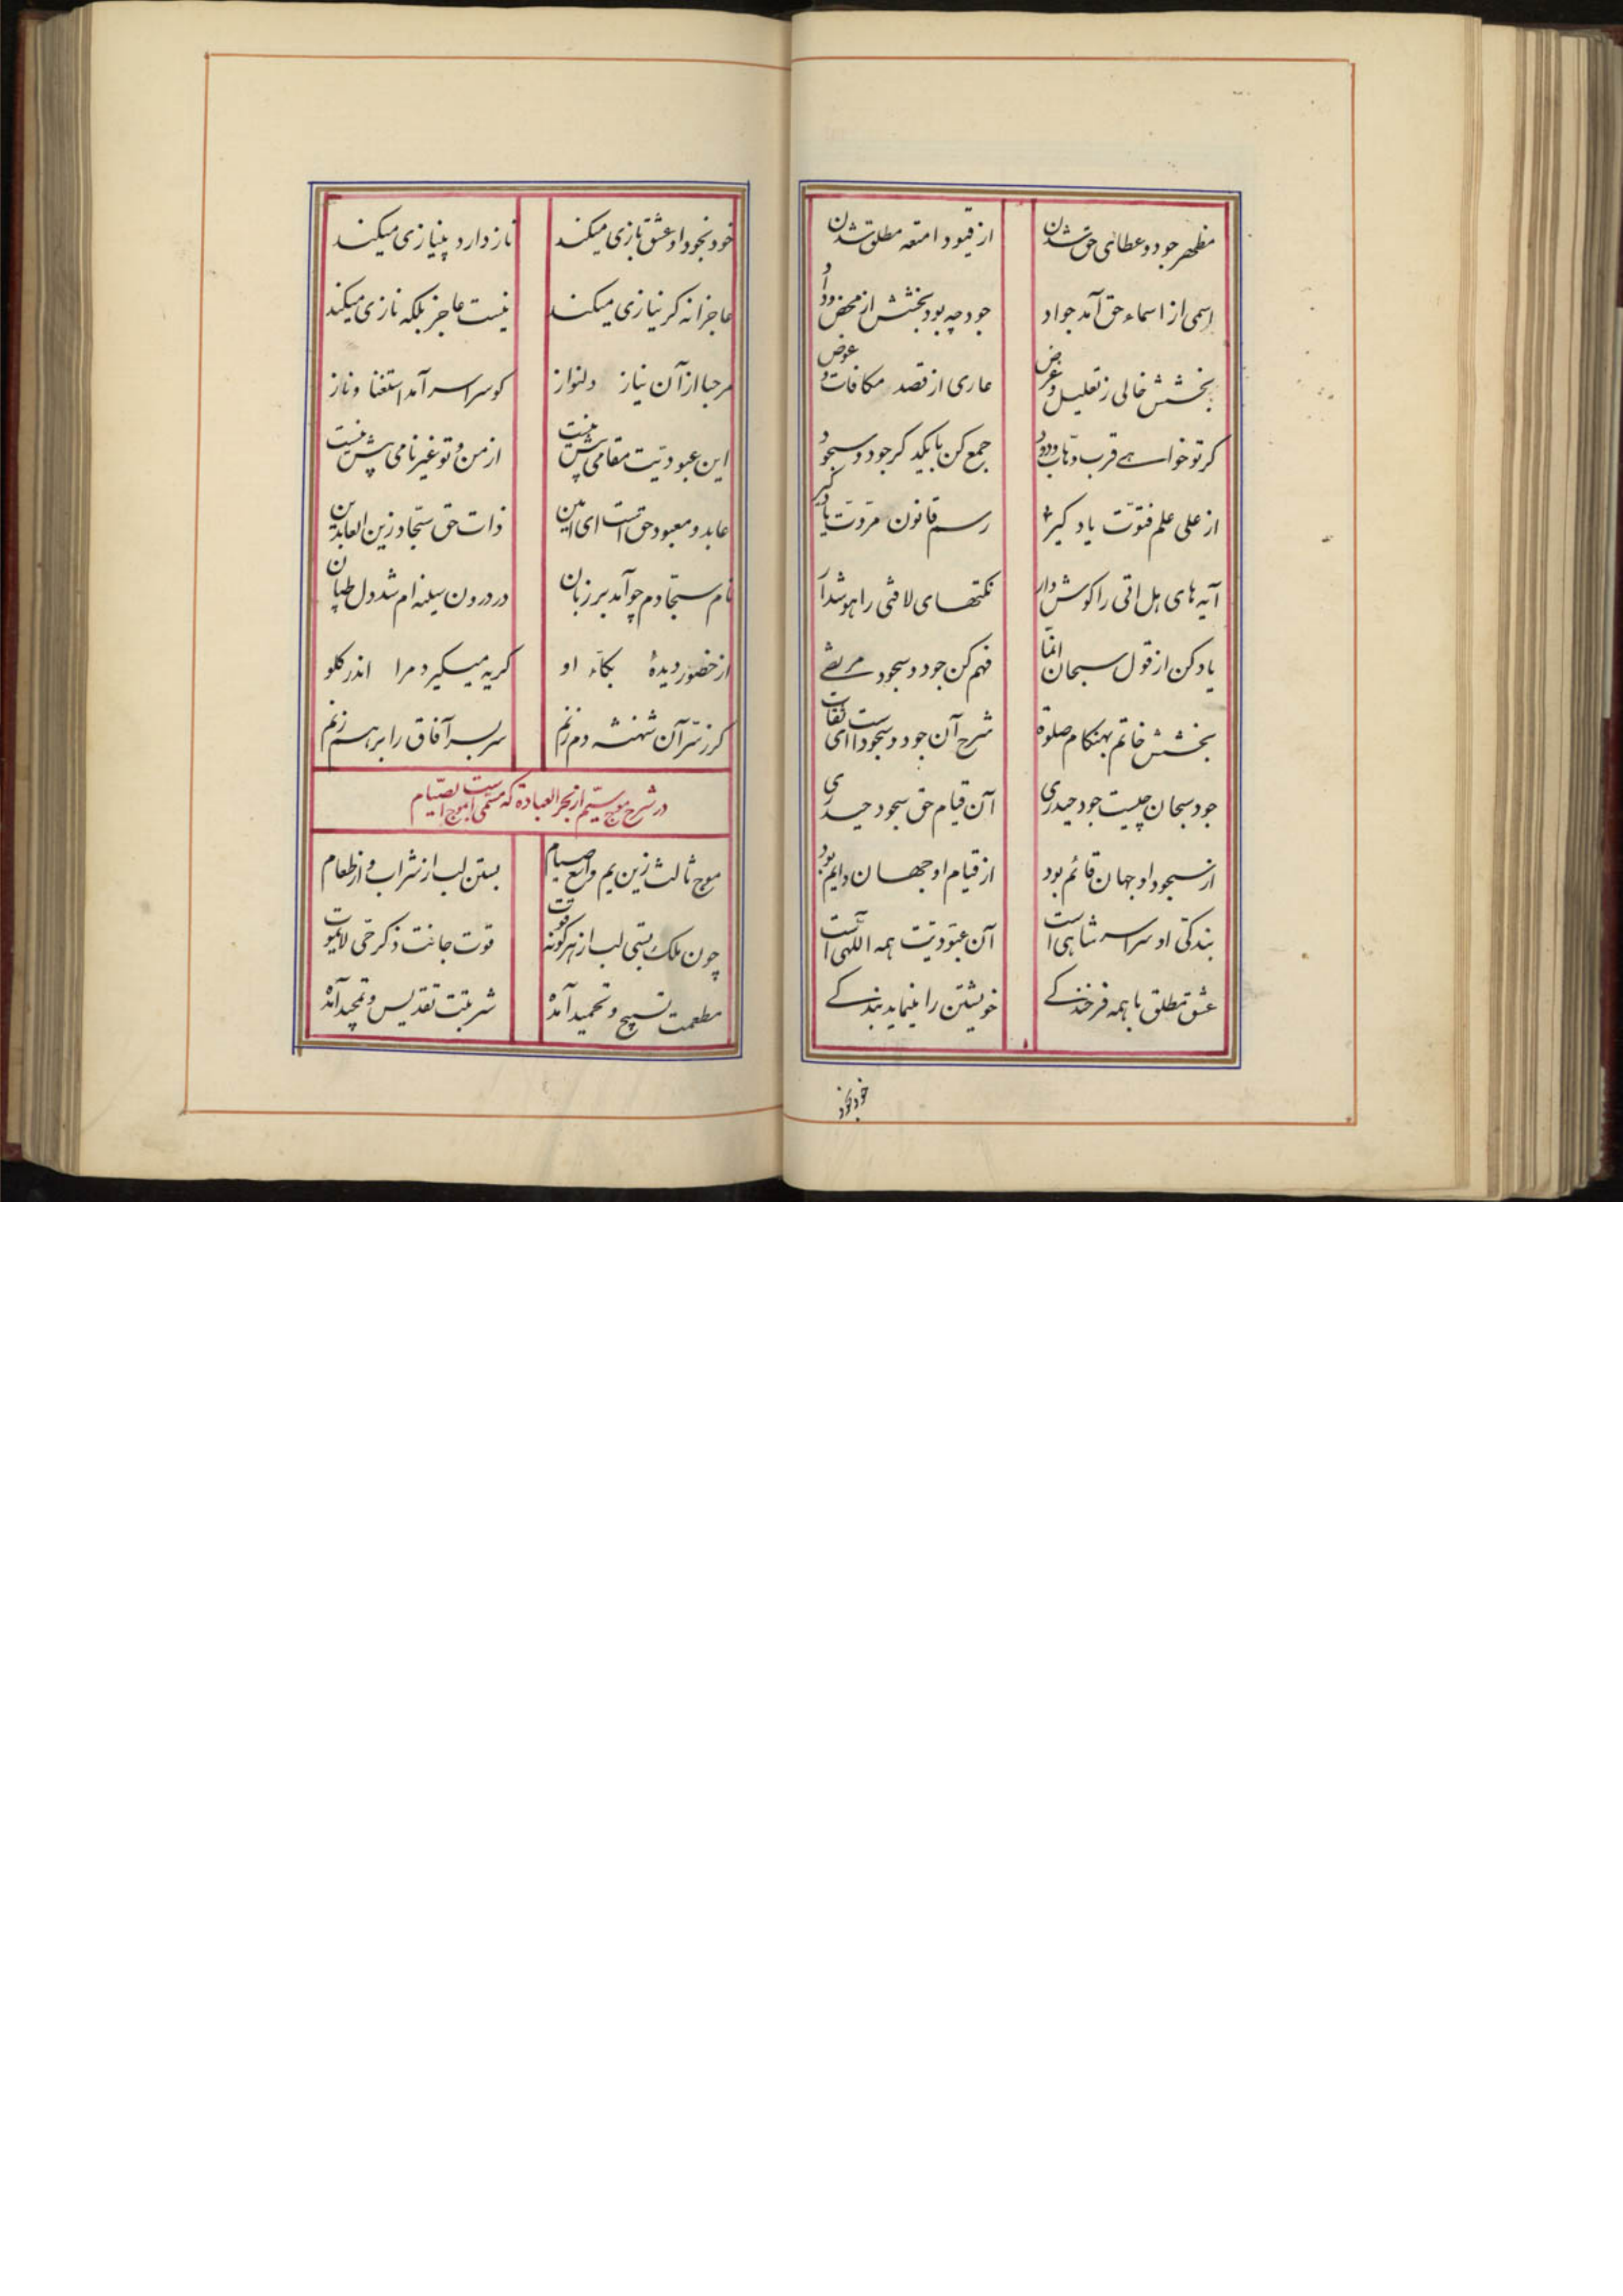 مظهر جود و عطای حق شدن از قیود امتعه مطلق شدن
اسمی از اسماء حق آمد جواد جود چه بود بخشش از محض وداد
بخشش خالی ز تعلیل و غرض عاری از قصد مکافات و عوض
کر تو خواهے قرب وهّاب ودود جمع کن با یکدکر جود و سجود
از علی علم فتوّت یاد کیر رسم قانون مروّت یاد کیر
آیه های هل اتی را کوش دار نکتهای لافتی را هوش دار
یاد کن از قول سبحان انّما فهم کن جود و سجود مرتضے
بخشش خاتم بهنکام صلوة شرح آن جود و سجود است ای ثقات
جود سبحان چیست جود حیدری آن قیام حق سجود حیدری
از سجود او جهان قائم بود از قیام او جهان دایم بود
بندکی او سراسر شاهی است آن عبودیّت همه اللهی است
عشق مطلق با همه فرخندکے خویشتن را مینماید بندکے
خود بخود
خود بخود او عشق بازی میکند ناز دارد بینیازی میکند
عاجزانه کر نیازی میکند نیست عاجز بلکه نازی میکند
مرحبا از آن نیاز دلنواز کو سراسر آمد استغنا و ناز
این عبودیّت مقامی بیش نیست از من و تو غیر نامی بیش نیست
عابد و معبود حق است ای امین ذات حق سجّاد زین العابدین
نام سجّادم چو آمد بر زبان در درون سینه ام شد دل طپان
از حضور دیدهٔ بکّاء او کریه میکیرد مرا اندر کلو
کر ز سرّ آن شهنشه دم زنم سر بسر آفاق را بر هم زنم
در شرح موج سیّم از بحر العبادة که مسمّی است بموج الصیام
موج ثالث زین یم واسع صیام بستن لب از شراب و از طعام
چون ملک بستی لب از هر کونه قوت قوت جانت ذکر حیّ لایموت
مطعمت تسبیح و تحمید آمده شربتت تقدیس و تمجید آمده